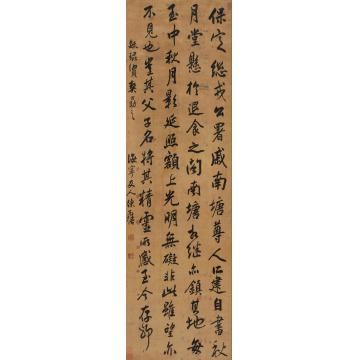 保定总戎公署戚南塘尊人所建自書秋
月堂懸於退食之閣南塘相继亦鎮其地每
至中秋月影延照額上光明無礙非此雖望亦
不見也豈其父子名將其精靈所感至今存耶
海寧友人陳